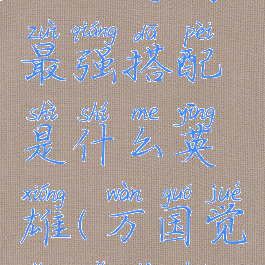 zuì qiáng dā pèi
最强搭配
shì shí me yīng
是什么英
xióng wàn guó jué
雄(万国觉